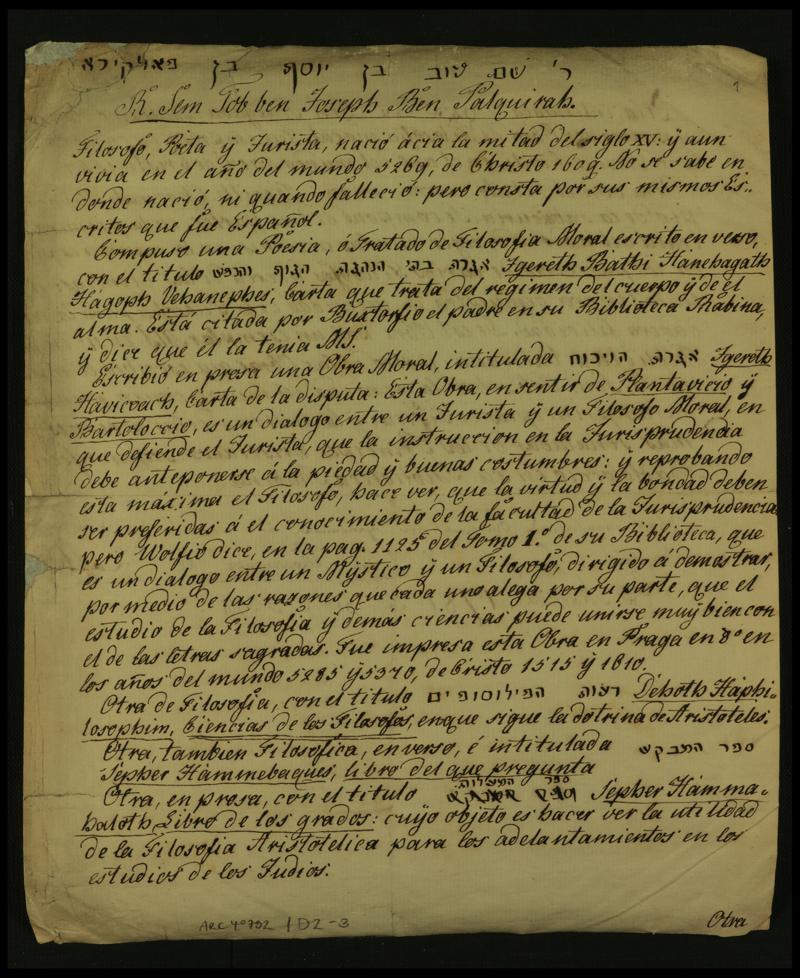 ר' שם טוב בן יוסף בן פאלקירא
1
R. Sem Tob ben Joseph Ben Palquirah.
Filosofo, Poeta ÿ Jurista, nació ácia la mitad del siglo XV: ÿ aun
vivia en el año del mundo 5269, de Christo 1609. No se sabe en
donde nació, ni quando falleció: pero consta por sus mismos Es-
critos que fue Español.
Compuso una Poesia, ó Tratado de Filosofia Moral escrito en verso,
con el titulo אגרת בהי הנהגת הגוף והנפש Igereth Bathi Hanehagath
Hagoph Vehanephes, Carta que trata del regimen del cuerpo ÿ de el
alma. Está citada por Buxtorfio el padre en su Biblioteca Rabina,
ÿ dice que él la tenia MS.
Escribió en presa una Obra Moral, intitulada אגרת הויכוח Igereth
Havicoach, Carta de la disputa: Esta Obra, en sentir de Plantavicio ÿ
Bartoloccio, es un dialogo entre un Jurista ÿ un Filosofo Moral, en
que defiende el Jurista, que la instruccion en la Jurisprudencia
debe anteponerse á la piedad ÿ buenas costumbres: ÿ reprobando
esta máxima el Filosofo, hace ver, que la virtud ÿ la bondad deben
ser preferidas á el conocimiento de la facultad de la Jurisprudencia
pero Wolfio dice, en la pag. 1125 del Tomo 1.º de su Biblioteca, que
es un dialogo entre un Mÿstico ÿ un Filosofo, dirigido á demostrar,
por medio de las razones que cada uno alega por su parte, que el
estudio de la Filosofia ÿ demás ciencias puede unirse muÿ bien con
el de las letras sagradas. Fue impresa esta Obra en Praga en 8º en
los años del mundo 5285 ÿ 5370, de Cristo 1515 ÿ 1610.
Otra de Filosofia, con el titulo דעות הפילוסופים Dehoth Haphi-
losophim, Ciencias de los Filosofos, en que sigue la dotrina de Aristoteles.
Otra, tambien Filosofica, en verso, é intitulada ספר המבקש
Sepher Hammebaques, libro del que pregunta
Otra, en presa, con el titulo ספר המעלות Sepher Hamma-
haloth, Libro de los grados: cuÿo objeto es hacer ver la utilidad
de la Filosofia Aristotelica para los adelantamientos en los
estudios de los Judios.
Otra
ARC 4º 792 / D2-3